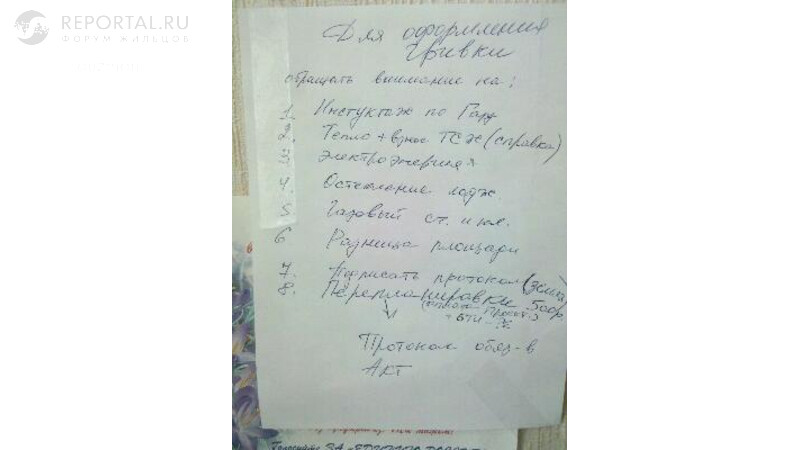 REPORTAL.RU
ФОРУМ ЖИЛЬЦОВ
Для оформления
обращать внимание на:
1. Инстуктаж по
2. Тепло + взнос ТСЖ (справка)
3. Электроэнергия
4. Остекление лодж.
5. Газовый сч. и кл.
6 Разница площади
7. Подписать протокол
8. Перепланировки 500р
+ БТИ
Протокол обяз-в
Акт